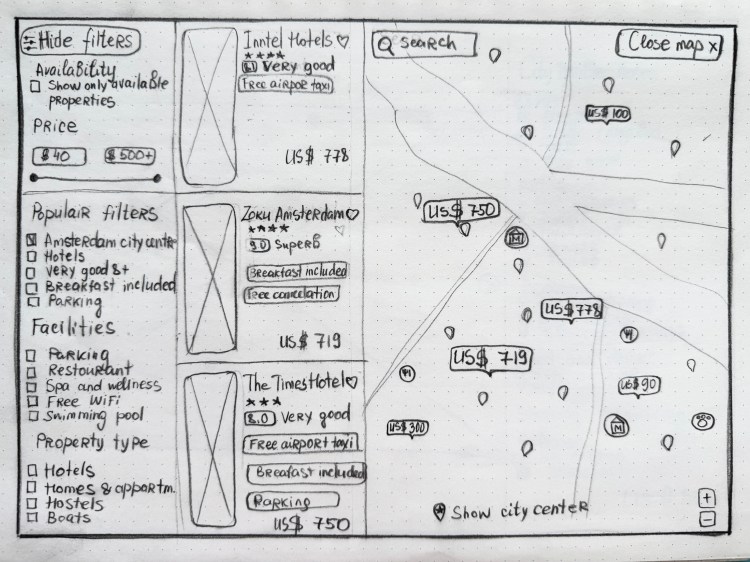 Hide filters
Availability
Show only available
properties
Price
$40
$500+
Populair filters
Amsterdam city cente
Hotels
very good 8+
Breakfast included
Parking
Facilities
Parking
Restourtant
Spa and wellness
Free WiFi
Swimming pool
Property type
Hotels
Homes & appartm.
Hostels
Boats
Inntel Hotels
Very good
Free airpor taxi
US$ 778
Zoku Amsterdam
9.0 Superb
Breakfast included
Free cancelation
US$ 719
The Times Hotel
8.0 Very good
Free airport taxi
Breafast included
Parking
US$ 750
Search
Close map x
US$ 100
US$ 750
M
US$ 778
US$ 719
US$ 90
US$ 300
M
Show city center
+
-